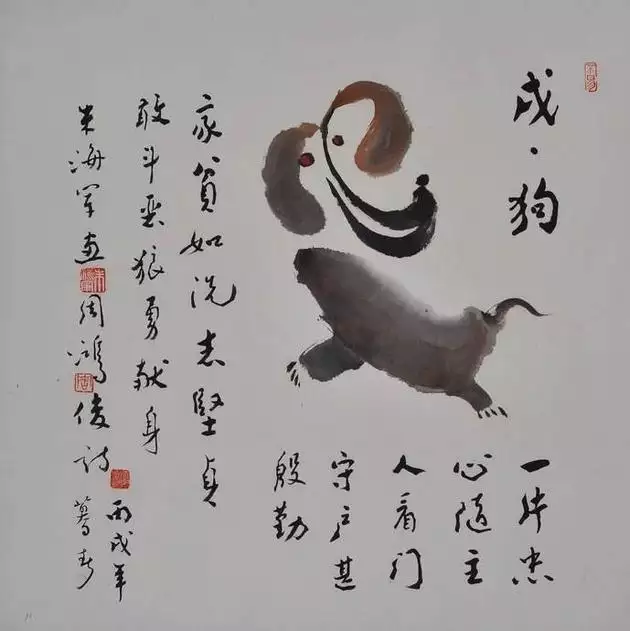 戌·狗
一片忠
心随主
人看门
守户甚
殷勤
家贫如洗志堅贞
敢斗恶狼勇献身
朱海军画 周鸿俊诗
丙戌年
暮春